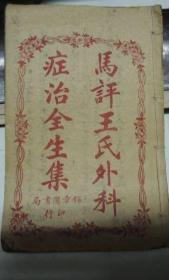 馬評王氏外科
症治全生集
錦章圖書局
印行